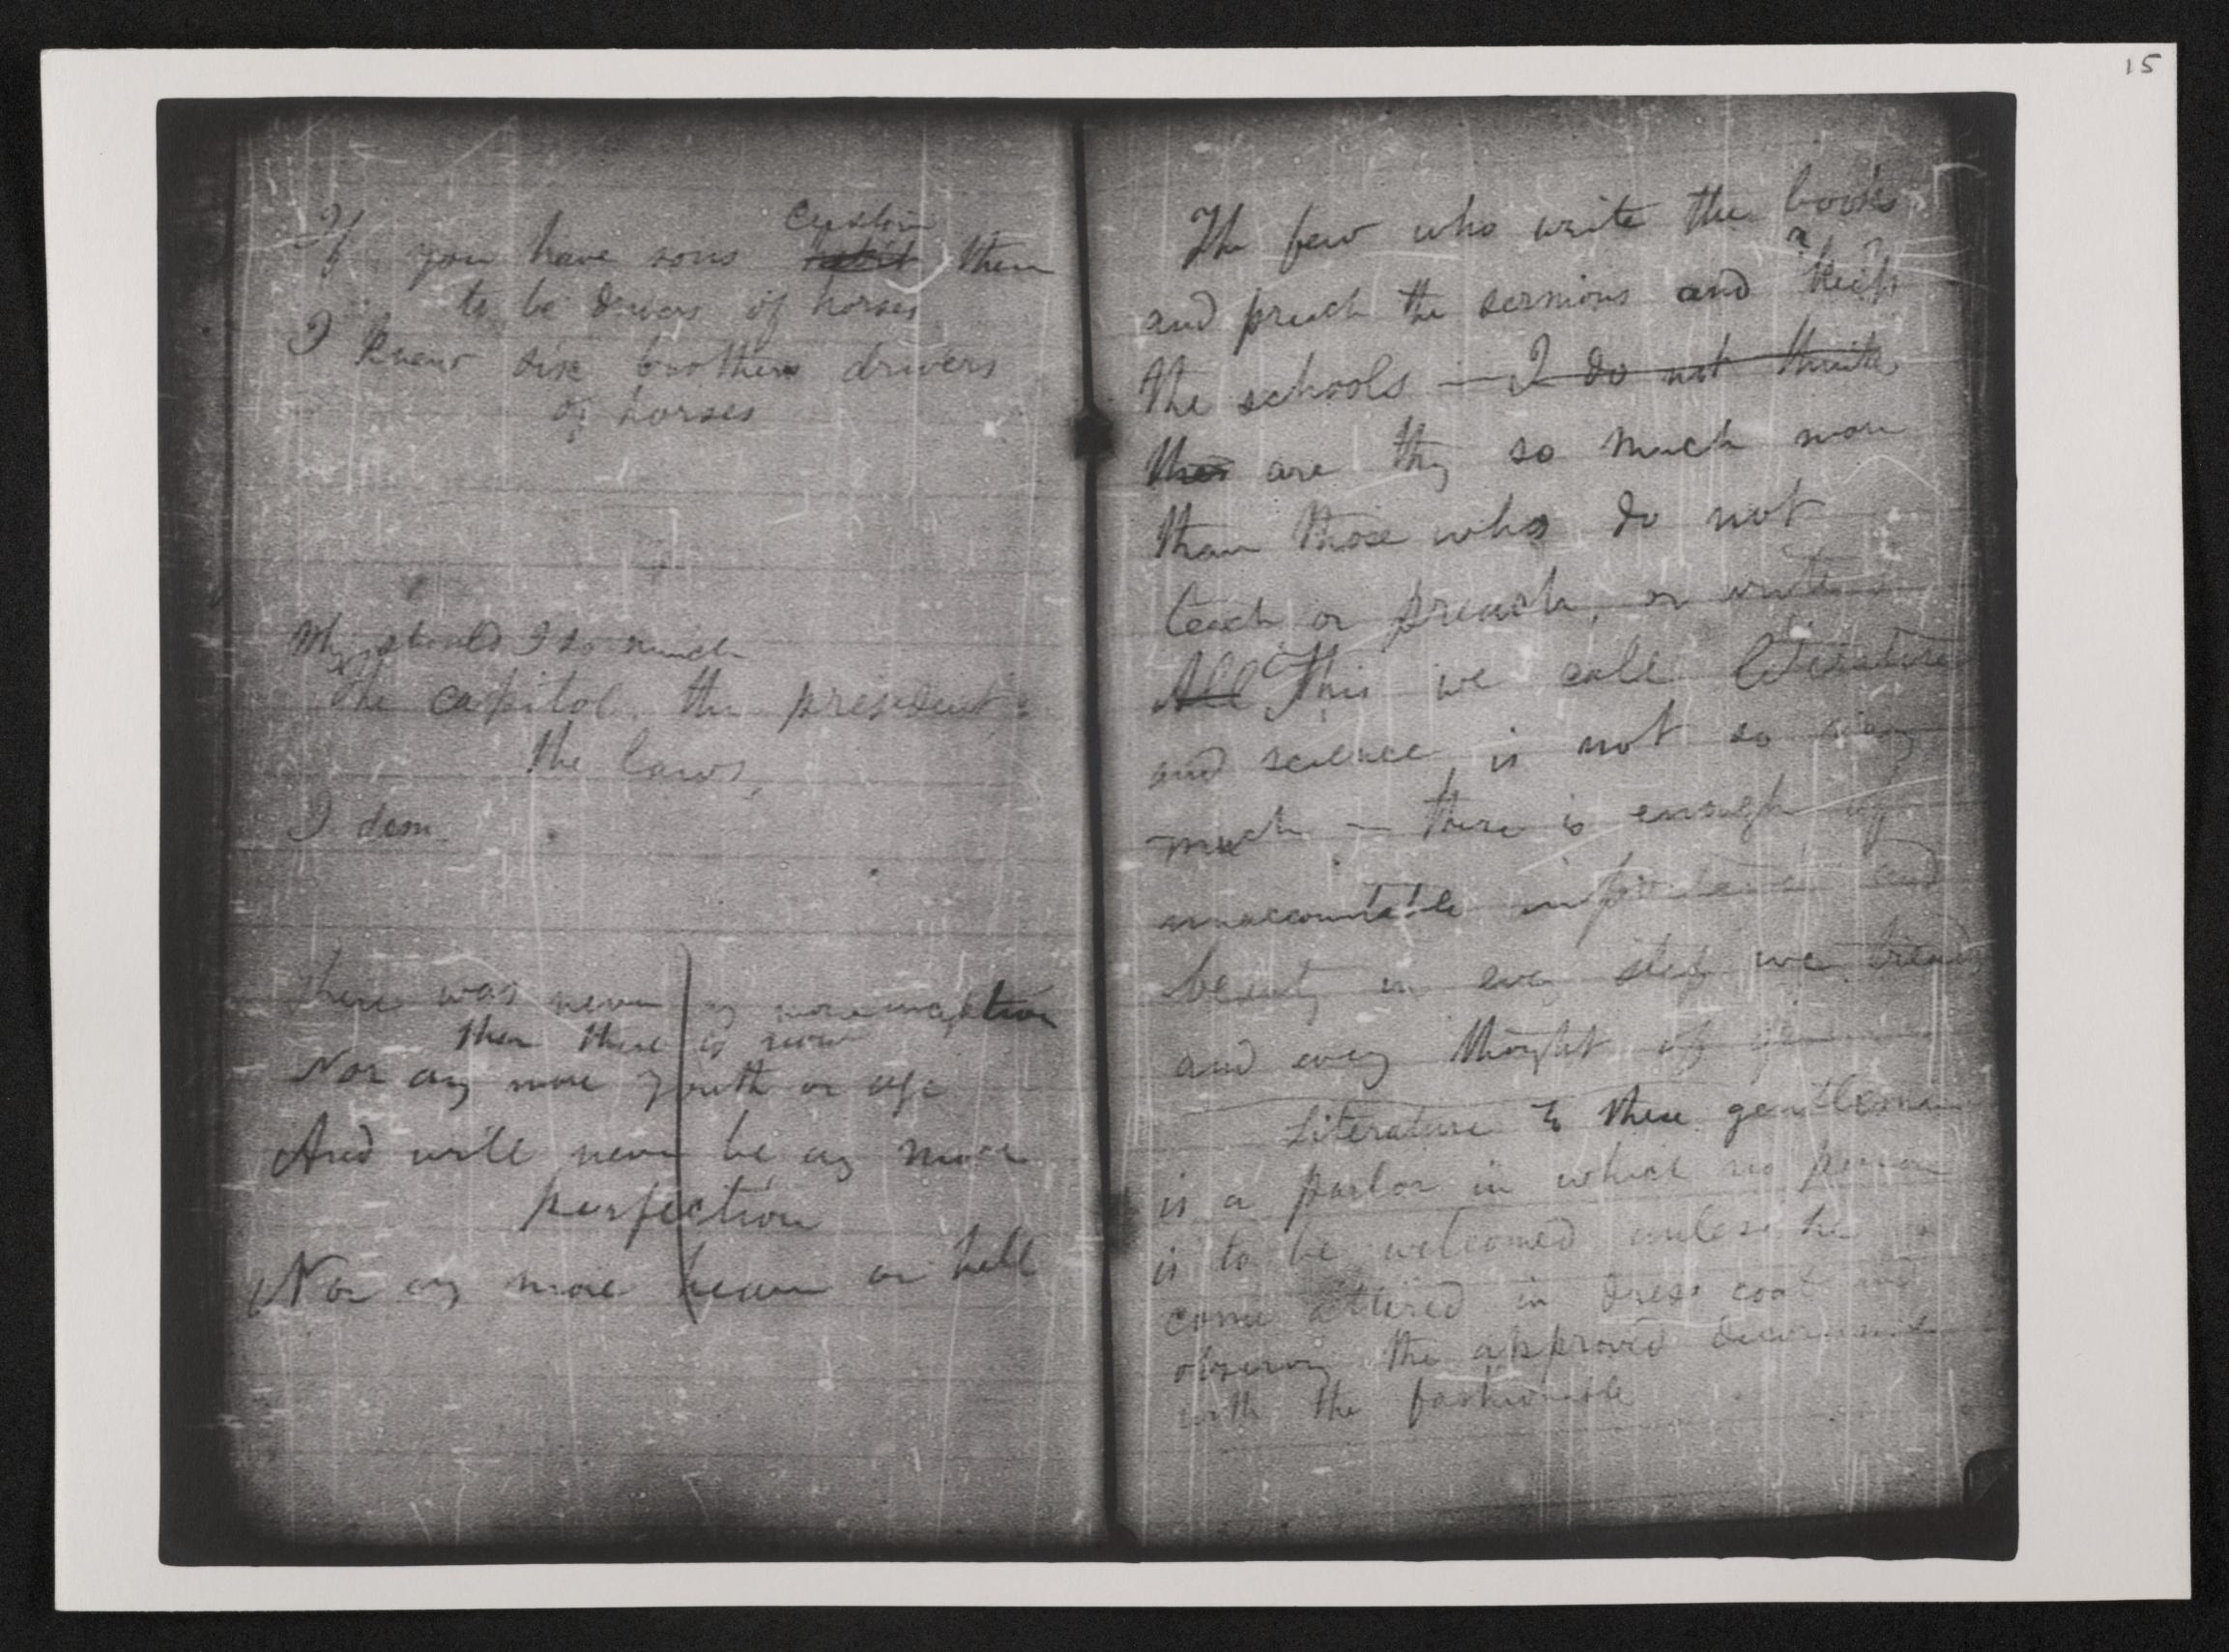 15
If you have sons ~~habit~~ custom them
to be drivers of horses
I knew six brothers drivers
of horses
Why should I so much
The capitol, the president,
the laws,
I dem
There was never any more inception
than there is now
Nor any more youth or age
And will never be any more
perfection
Nor any more heaven or hell
The few who write the books
and preach the sermons and keep
the schools — ~~I do not think~~
~~ther~~ are they so much more
than those who do not
teach or preach, or write
~~All~~ This we call literature
and science is not so very
much — there is enough of
unaccountable importance and
beauty in every step we tread
and every thought of
Literature to these gentlemen
is a parlor in which no person
is to be welcomed unless he
come attired in dress coat and
observing the approved decorums
with the fashionable